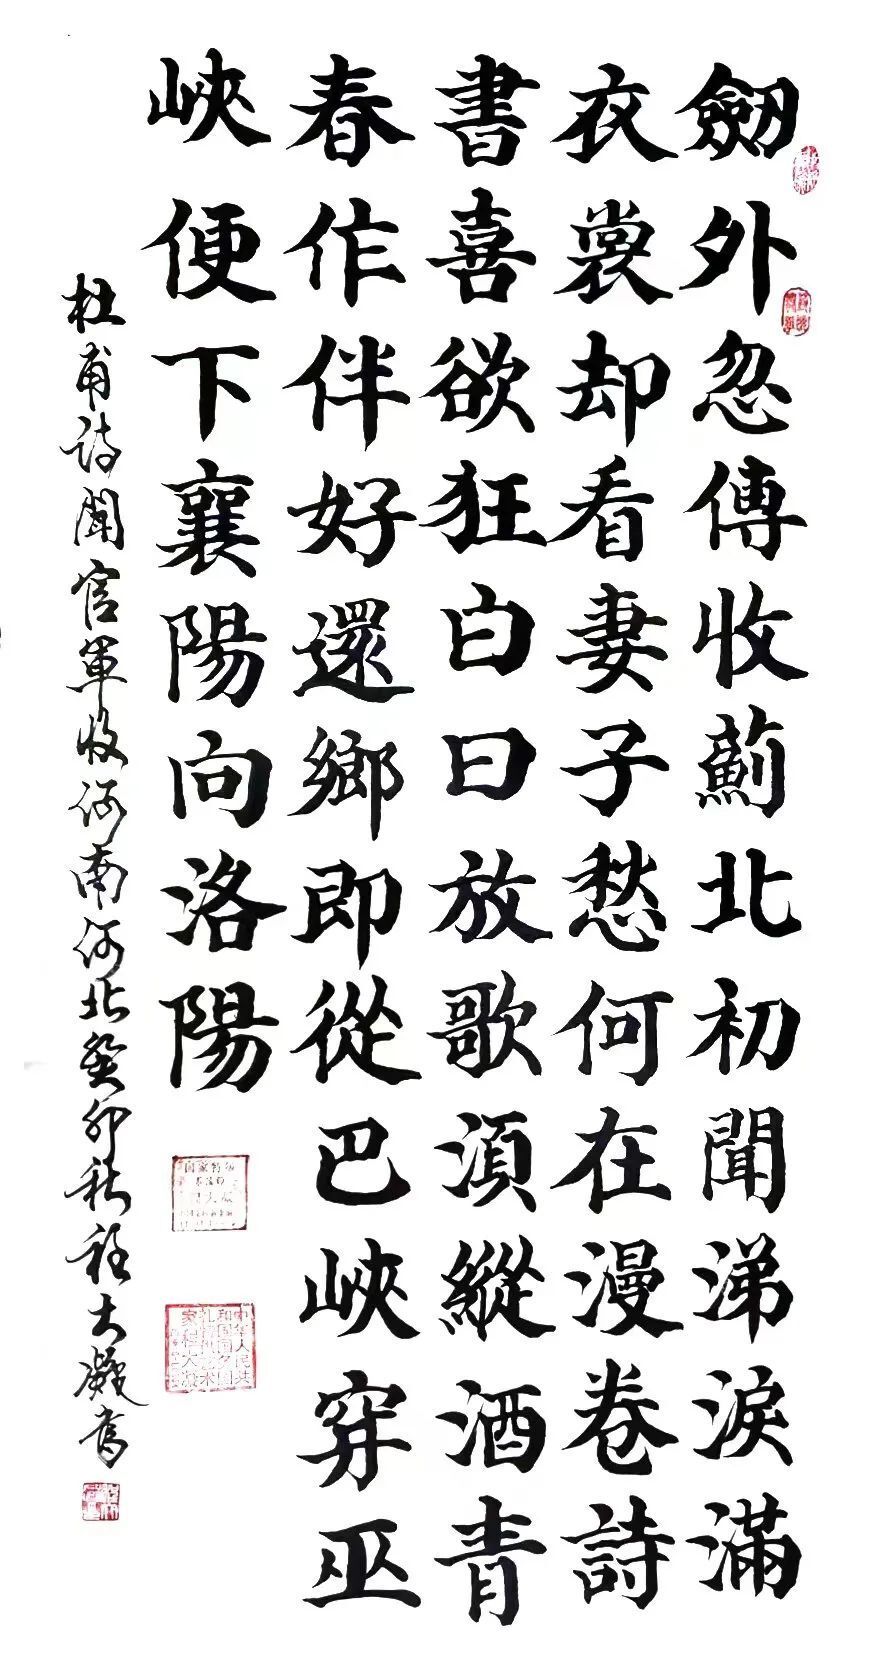 劒外忽傳收薊北初聞涕淚滿
衣裳却看妻子愁何在漫卷詩
書喜欲狂白日放歌湏縱酒青
春作伴好還鄉即從巴峽穿巫
峽便下襄陽向洛陽
杜甫詩聞官軍收河南河北癸卯秋程大凝書